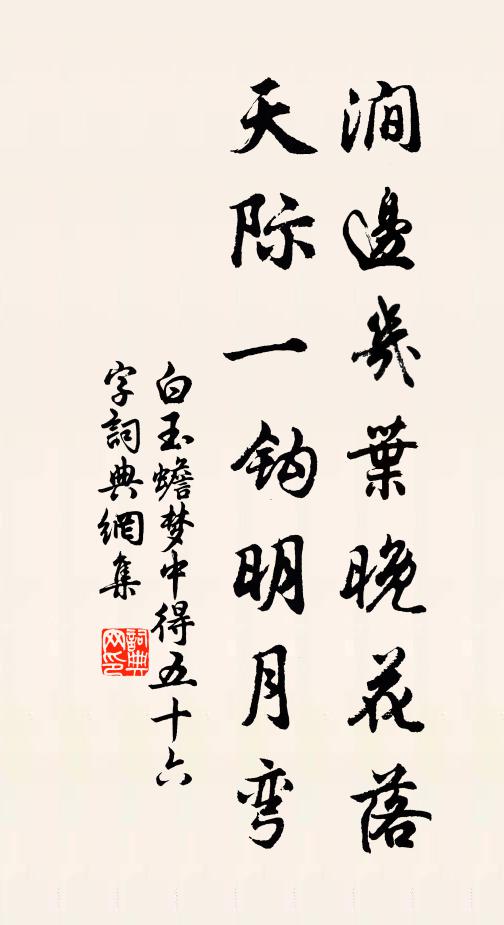 澗邊幾葉晚花落
天际一鈎明月弯
白玉蟾梦中得五十六
字詞典網集
詞典网印